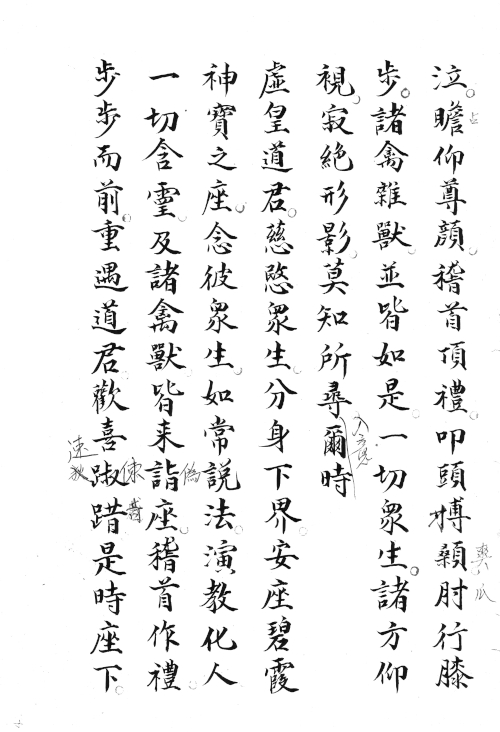 泣瞻仰尊顔稽首頂禮叩頭搏顙肘行膝
步諸禽雜獸並皆如是一切衆生諸方仰
視寂絶形影莫知所尋爾時
虛皇道君慈愍衆生分身下界安座碧霞
神寶之座念彼衆生如常説法演教化人
一切含靈及諸禽獸皆来詣座稽首作禮
步步而前重遇道君歡喜踧踖是時座下